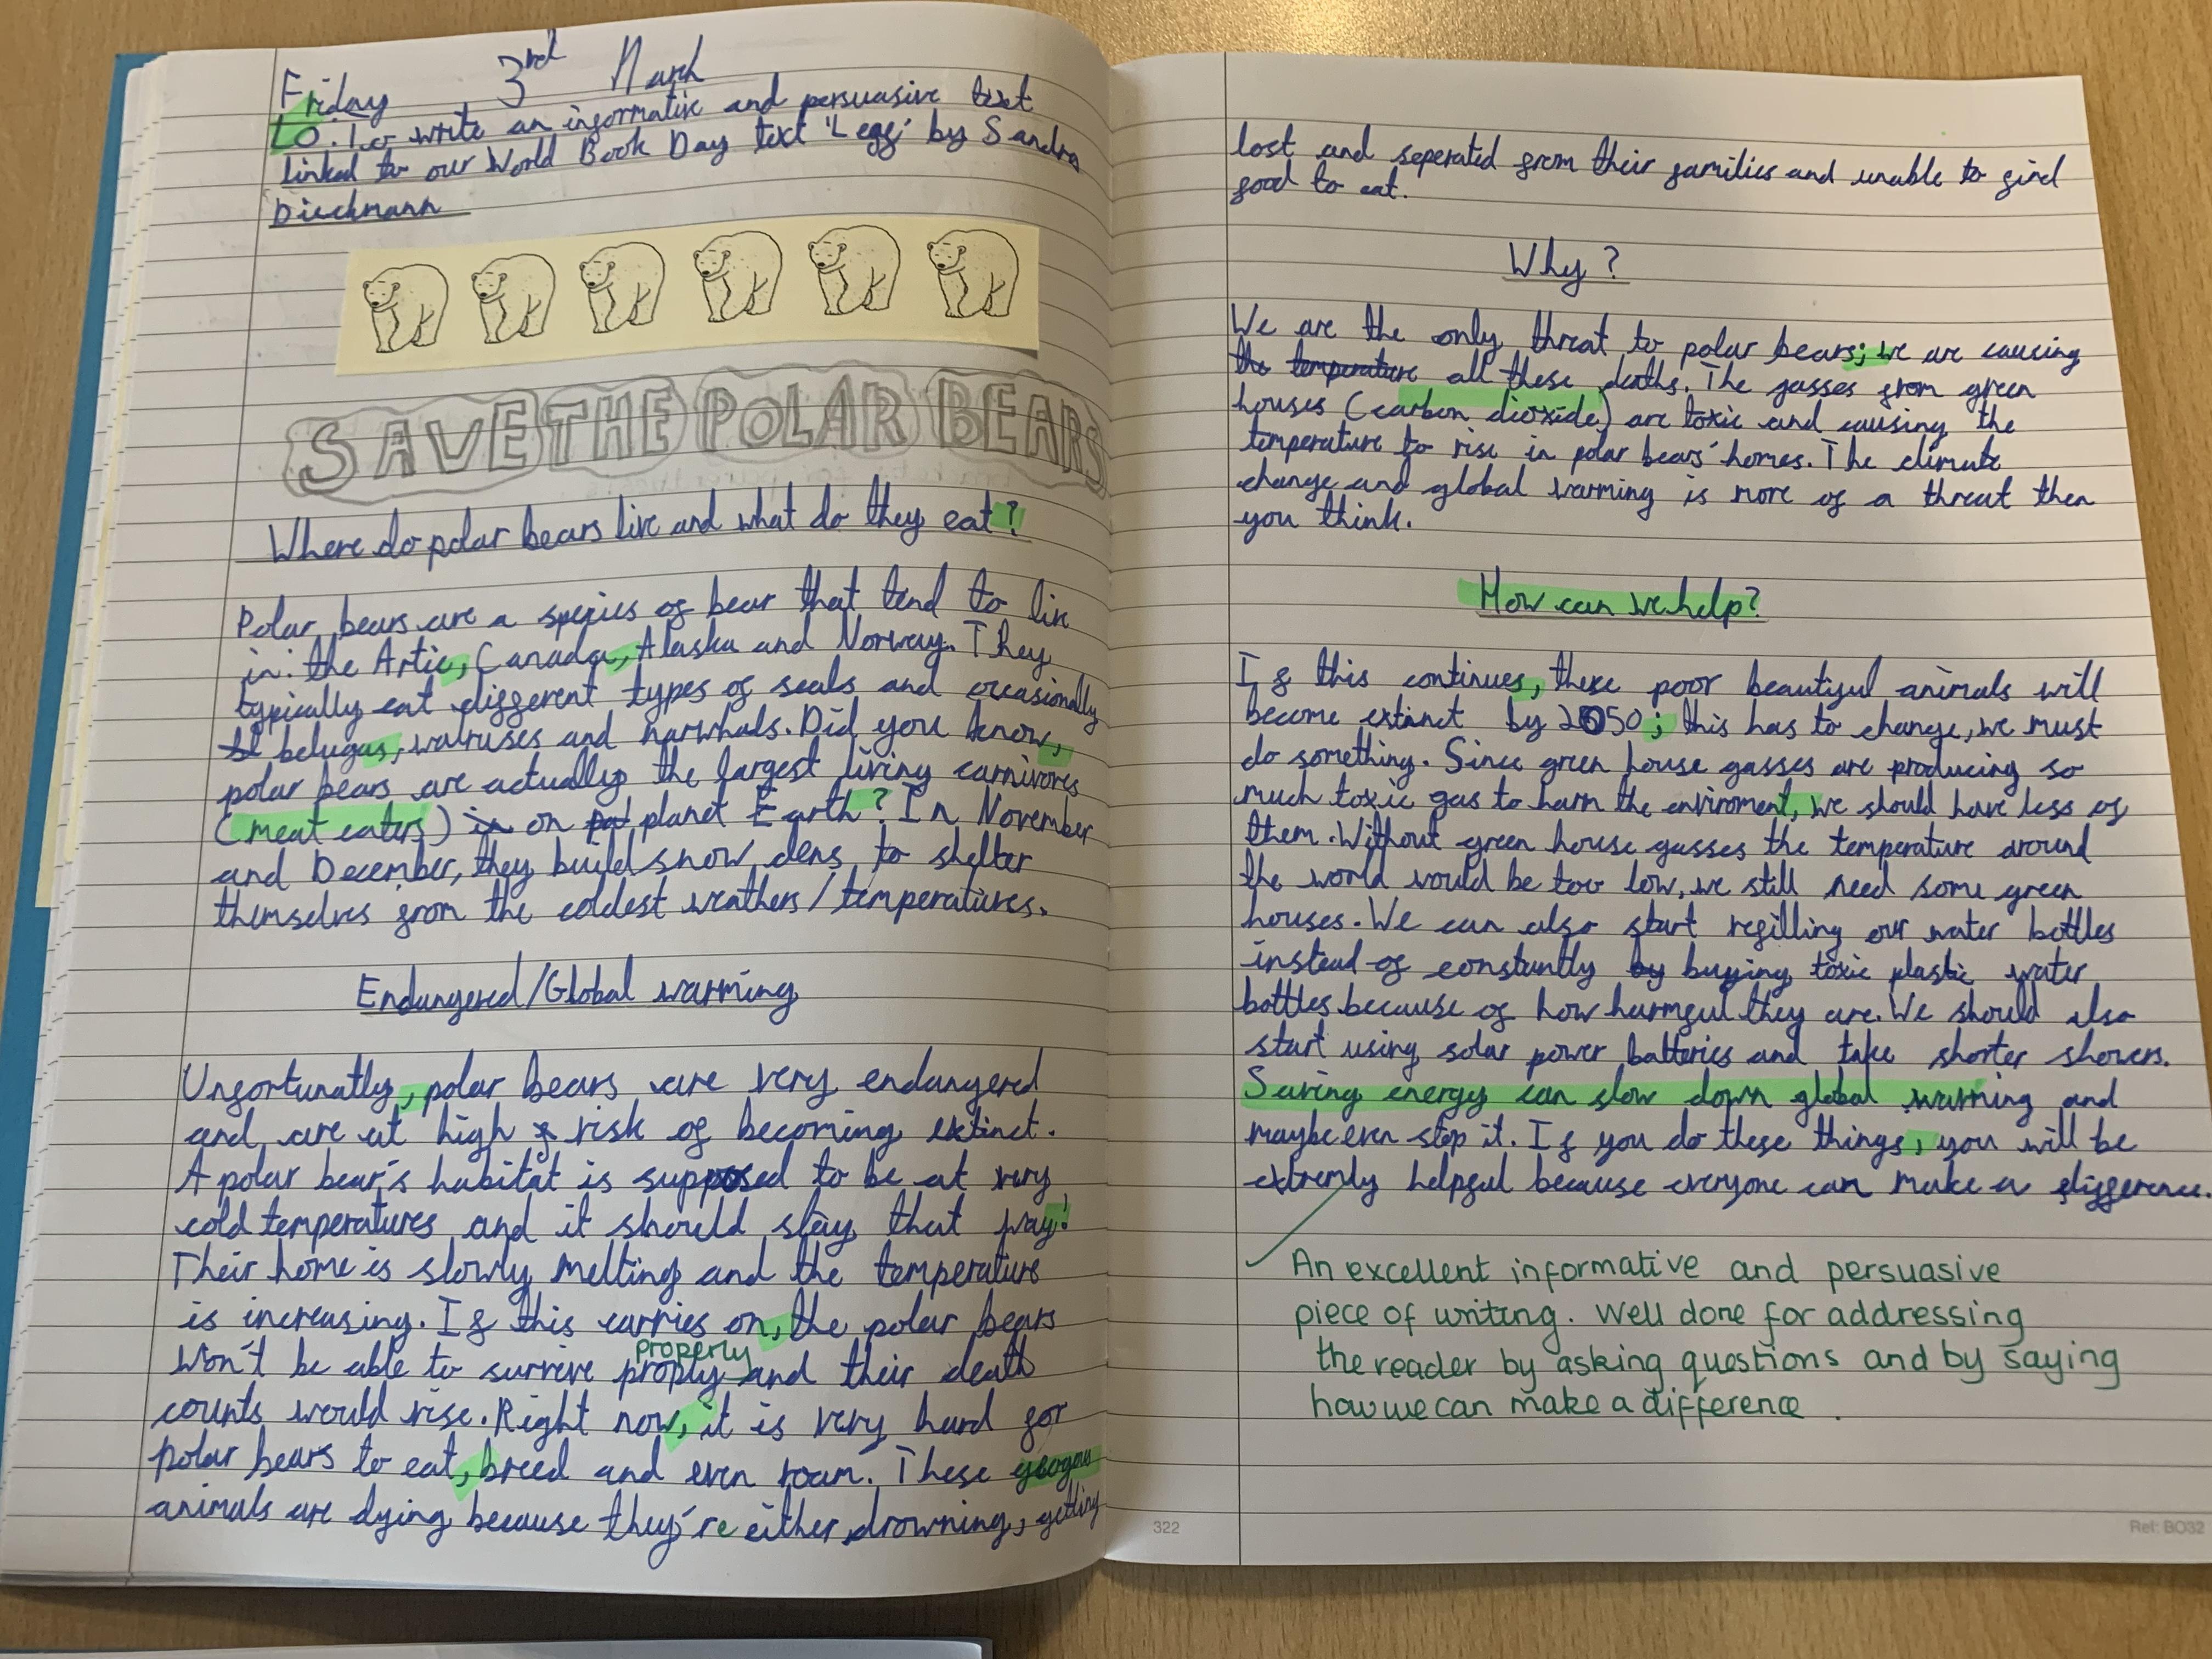 Friday 3rd March
LO: To write an informative and persuasive text
linked to our World Book Day text 'Leaf' by Sandra
Dieckmann
SAVE THE POLAR BEARS
Where do polar bears live and what do they eat?
Polar bears are a species of bear that tend to live
in: the Artic, Canada, Alaska and Norway. They
typically eat different types of seals and occasionally
belugas, walruses and narwhals. Did you know,
polar bears are actually the largest living carnivores
(meat eaters) in on planet Earth? In November
and December, they build snow dens to shelter
themselves from the coldest weathers/temperatures.
Endangered/Global warming
Unfortunatly, polar bears are very endangered
and are at high risk of becoming extinct.
A polar bear's habitat is supposed to be at very
cold temperatures and it should stay that way!
Their home is slowly melting and the temperature
is increasing. If this carries on, the polar bears
properly
won't be able to survive proply and their death
counts would rise. Right now, it is very hard for
polar bears to eat, breed and even roam. These
animals are dying because they're either drowning, getting
lost and seperated from their families and unable to find
food to eat.
Why?
We are the only threat to polar bears; we are causing
the temperature all these deaths. The gasses from green
houses (carbon dioxide) are toxic and causing the
temperature to rise in polar bears' homes. The climate
change and global warming is more of a threat then
you think.
How can we help?
If this continues, these poor beautiful animals will
become extinct by 2050; this has to change, we must
do something. Since green house gasses are producing so
much toxic gas to harm the enviroment, we should have less of
them. Without green house gasses the temperature around
the world would be too low, we still need some green
houses. We can also start refilling our water bottles
instead of constantly by buying toxic plastic water
bottles because of how harmful they are. We should also
start using solar power batteries and take shorter showers.
Saving energy can slow down global warming and
maybe even stop it. If you do these things, you will be
extremly helpful because everyone can make a difference.
An excellent informative and persuasive
piece of writing. Well done for addressing
the reader by asking questions and by saying
how we can make a difference.
322
Ref: BO32